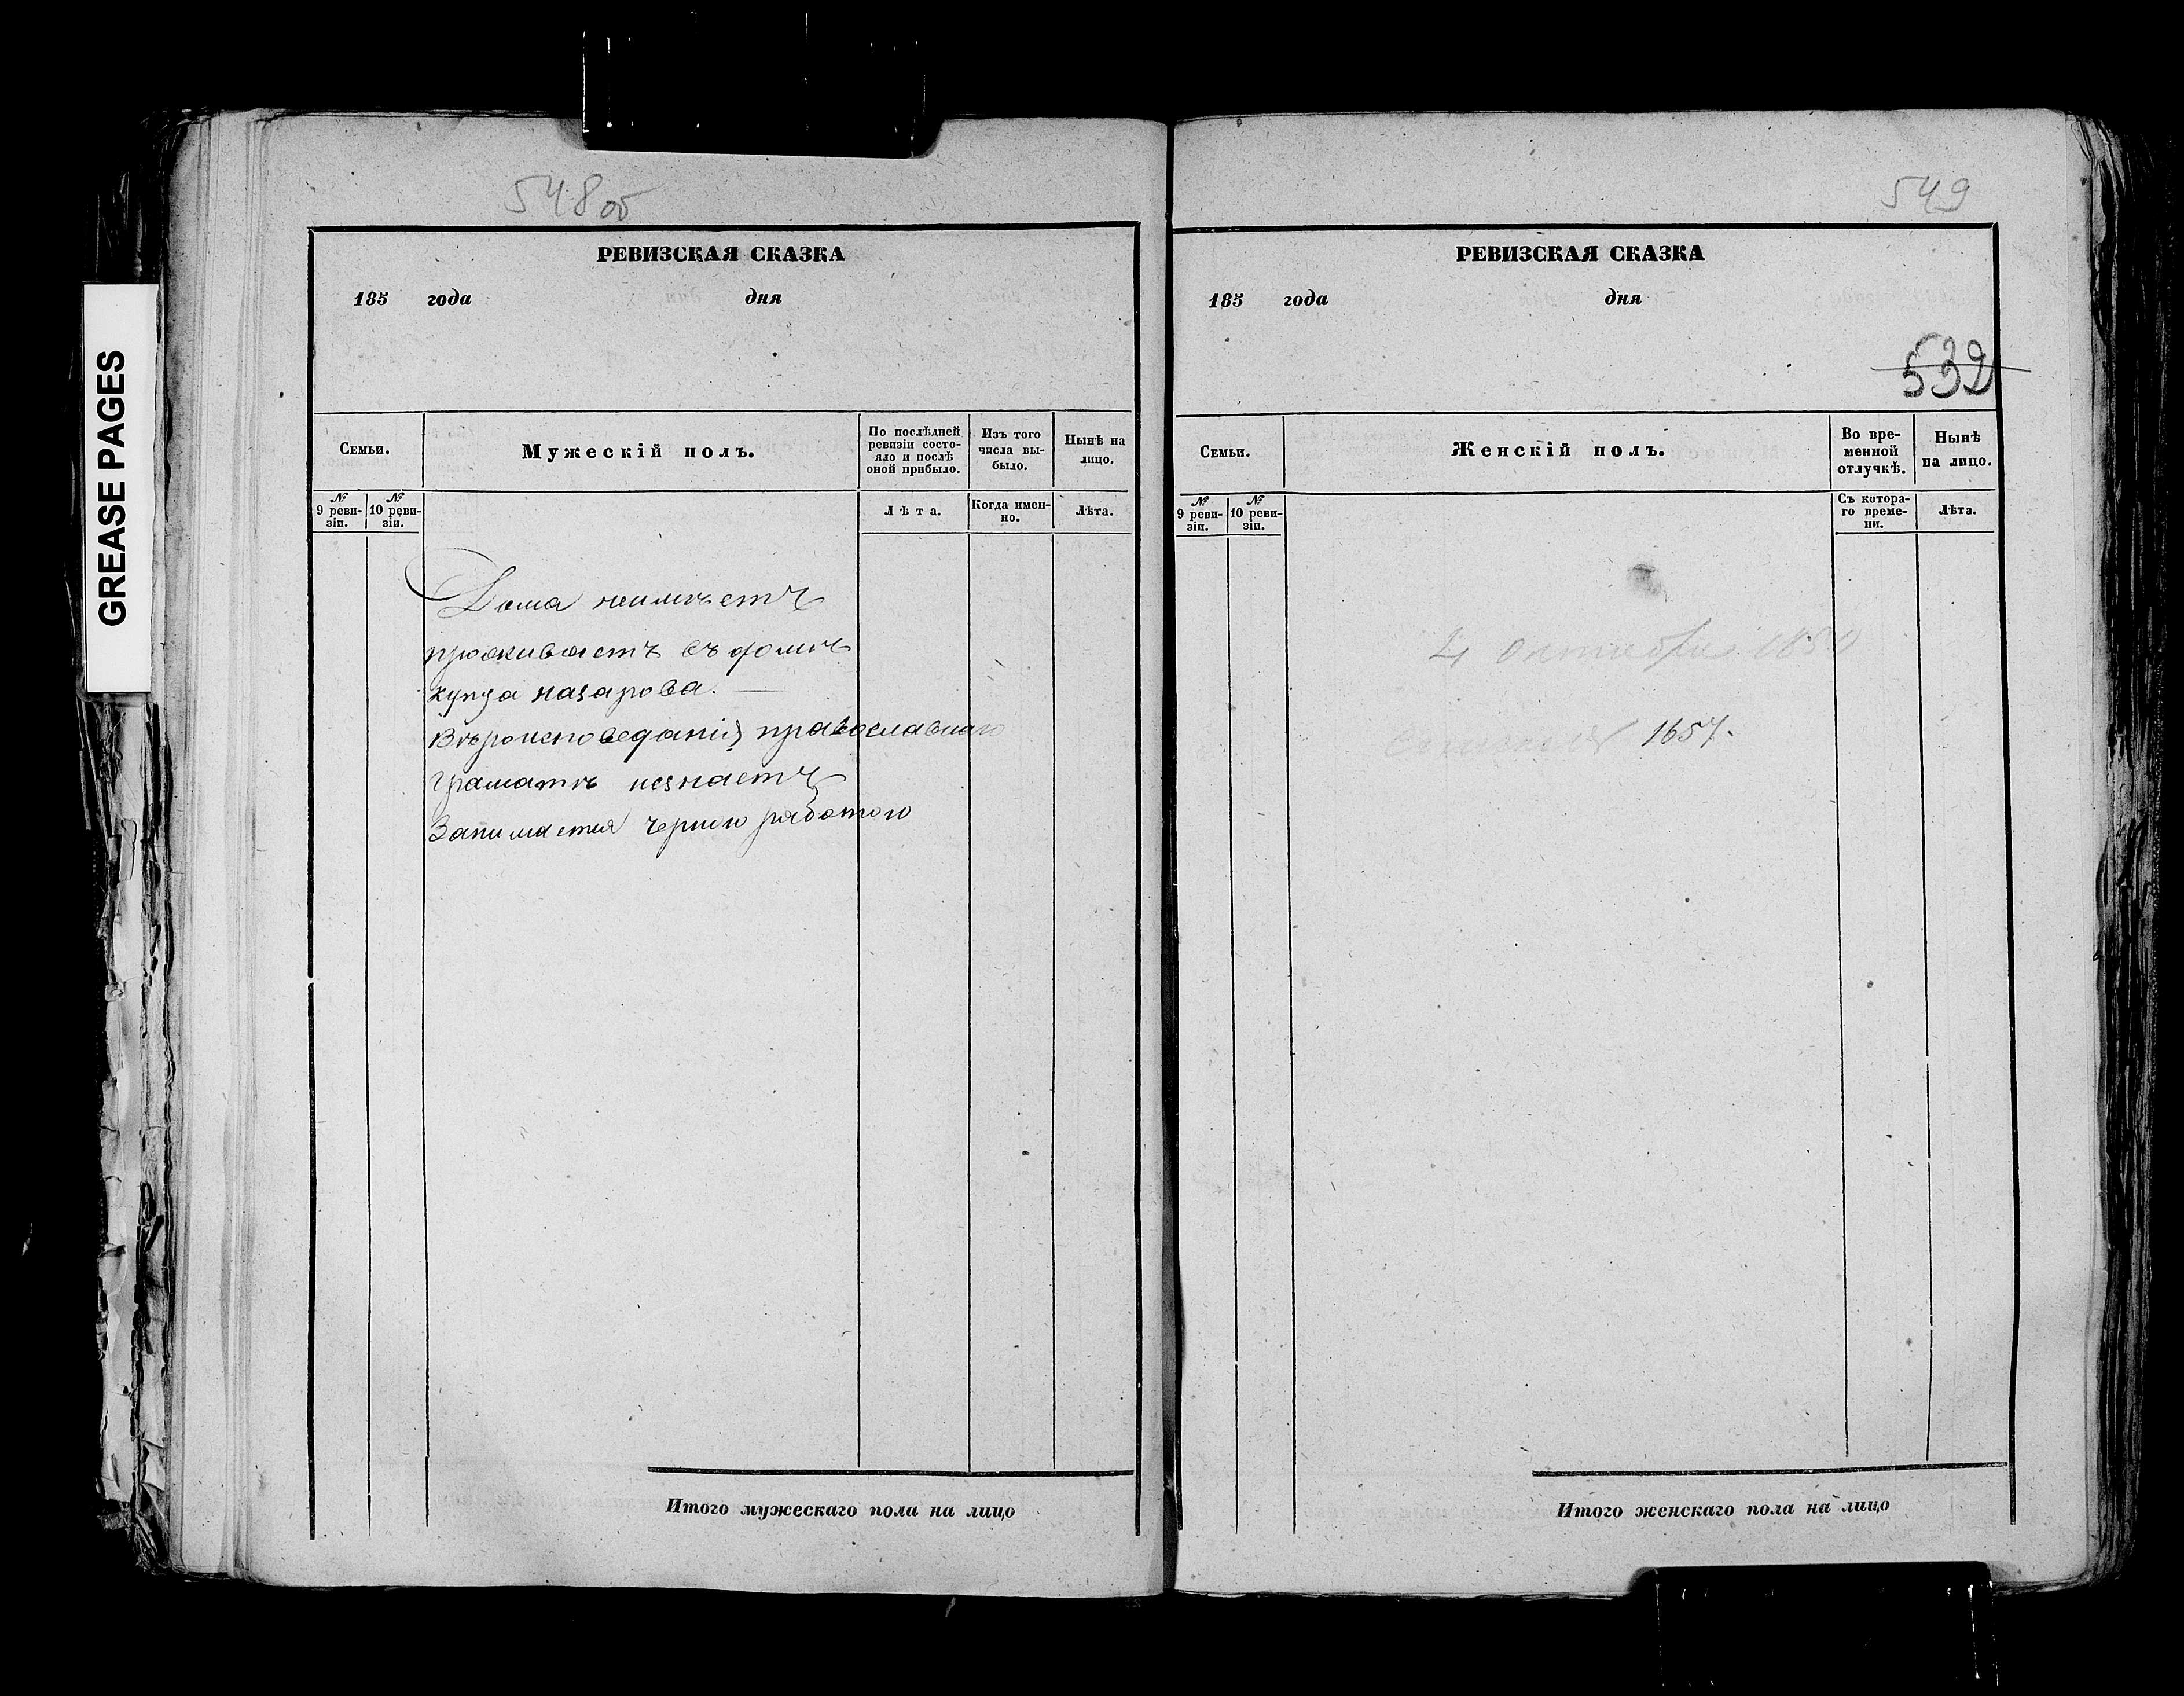 GREASE PAGES
548 об
РЕВИЗСКАЯ СКАЗКА
185 года дня
Семьи.
Мужескій полъ.
По послѣдней
ревизіи состо-
яло и послѣ
оной прибыло.
Изъ того
числа вы-
было.
Нынѣ на
лицо.
№
9 реви-
зіи.
№
10 реви-
зіи.
Лѣта.
Когда имен-
но.
Лѣта.
Дома неимѣетъ
проживаетъ въ домѣ
купца назарова. —
Вѣроисповеданія православнаго
Граматѣ незнаетъ
Занимается черною работою
Итого мужескаго пола на лицо
549
РЕВИЗСКАЯ СКАЗКА
185 года дня
532
Семьи.
Женскій полъ.
Во вре-
менной
отлучкѣ.
Нынѣ
на лицо.
№
9 реви-
зіи.
№
10 реви-
зіи.
Съ котора-
го време-
ни.
Лѣта.
4 октября
1657.
Итого женскаго пола на лицо